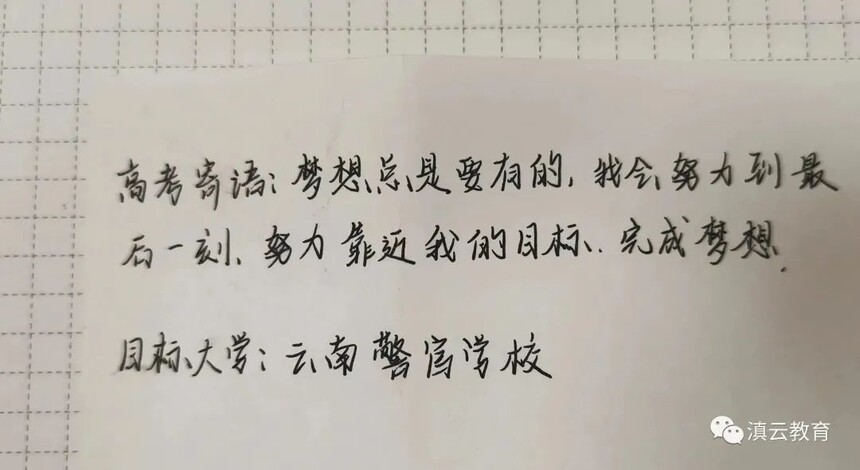 高考寄语：梦想总是要有的，我会努力到最
后一刻、努力靠近我的目标、完成梦想.
目标大学：云南警官学校
滇云教育